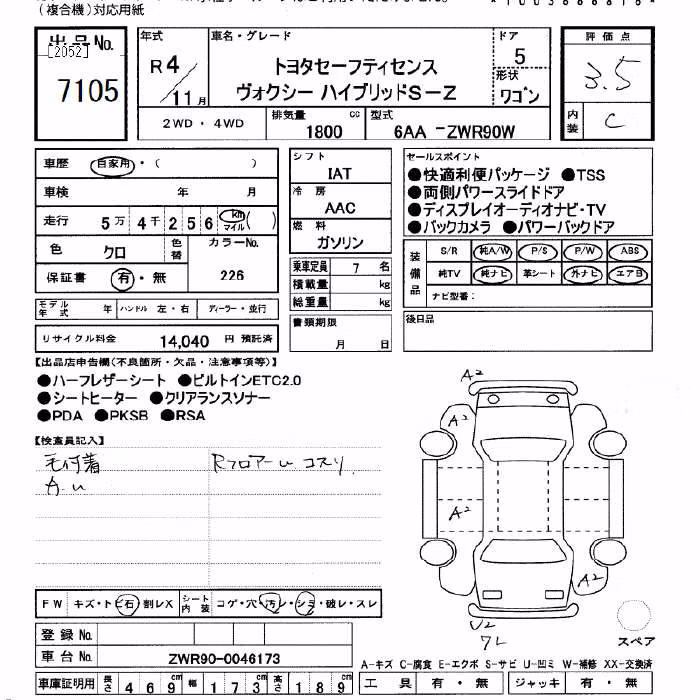 (複合機)対応用紙
出品No.
[2052]
7105
年式
R4
11月
車名・グレード
トヨタセーフティセンス
ヴォクシー ハイブリッドS-Z
ドア
5
形状
ワゴン
評価点
3.5
内装
C
2WD・4WD
排気量
1800
cc
型式
6AA -ZWR90W
車歴
自家用・( )
車検 年 月
走行 5万4千256 km マイル( )
色 クロ
色替
カラーNo.
226
保証書 有・無
シフト
IAT
冷房
AAC
燃料
ガソリン
乗車定員 7 名
積載量 kg
総重量 kg
書類期限
月 日
セールスポイント
●快適利便パッケージ ●TSS
●両側パワースライドドア
●ディスプレイオーディオナビ・TV
●バックカメラ ●パワーバックドア
装備品
S/R 純A/W P/S P/W ABS
純TV 純ナビ 革シート 外ナビ エアB
ナビ型番:
後日品
モデル年式 年 ハンドル 左・右 ディーラー・並行
リサイクル料金 14,040 円 預託済
【出品店申告欄(不良箇所・欠品・注意事項等)】
●ハーフレザーシート ●ビルトインETC2.0
●シートヒーター ●クリアランスソナー
●PDA ●PKSB ●RSA
【検査員記入】
毛付着
Rフロアーu コスリ
A2
A2
A2
A2
U2
スペア
FW キズ・トビ石 割レX
シート内装 コゲ・穴・汚レ・シミ・破レ・スレ
登録No.
車台No. ZWR90-0046173
A-キズ C-腐食 E-エクボ S-サビ U-凹ミ W-補修 XX-交換済
車庫証明用 長さ 469cm 幅 173cm 高さ 189cm
工具 有・無 ジャッキ 有・無